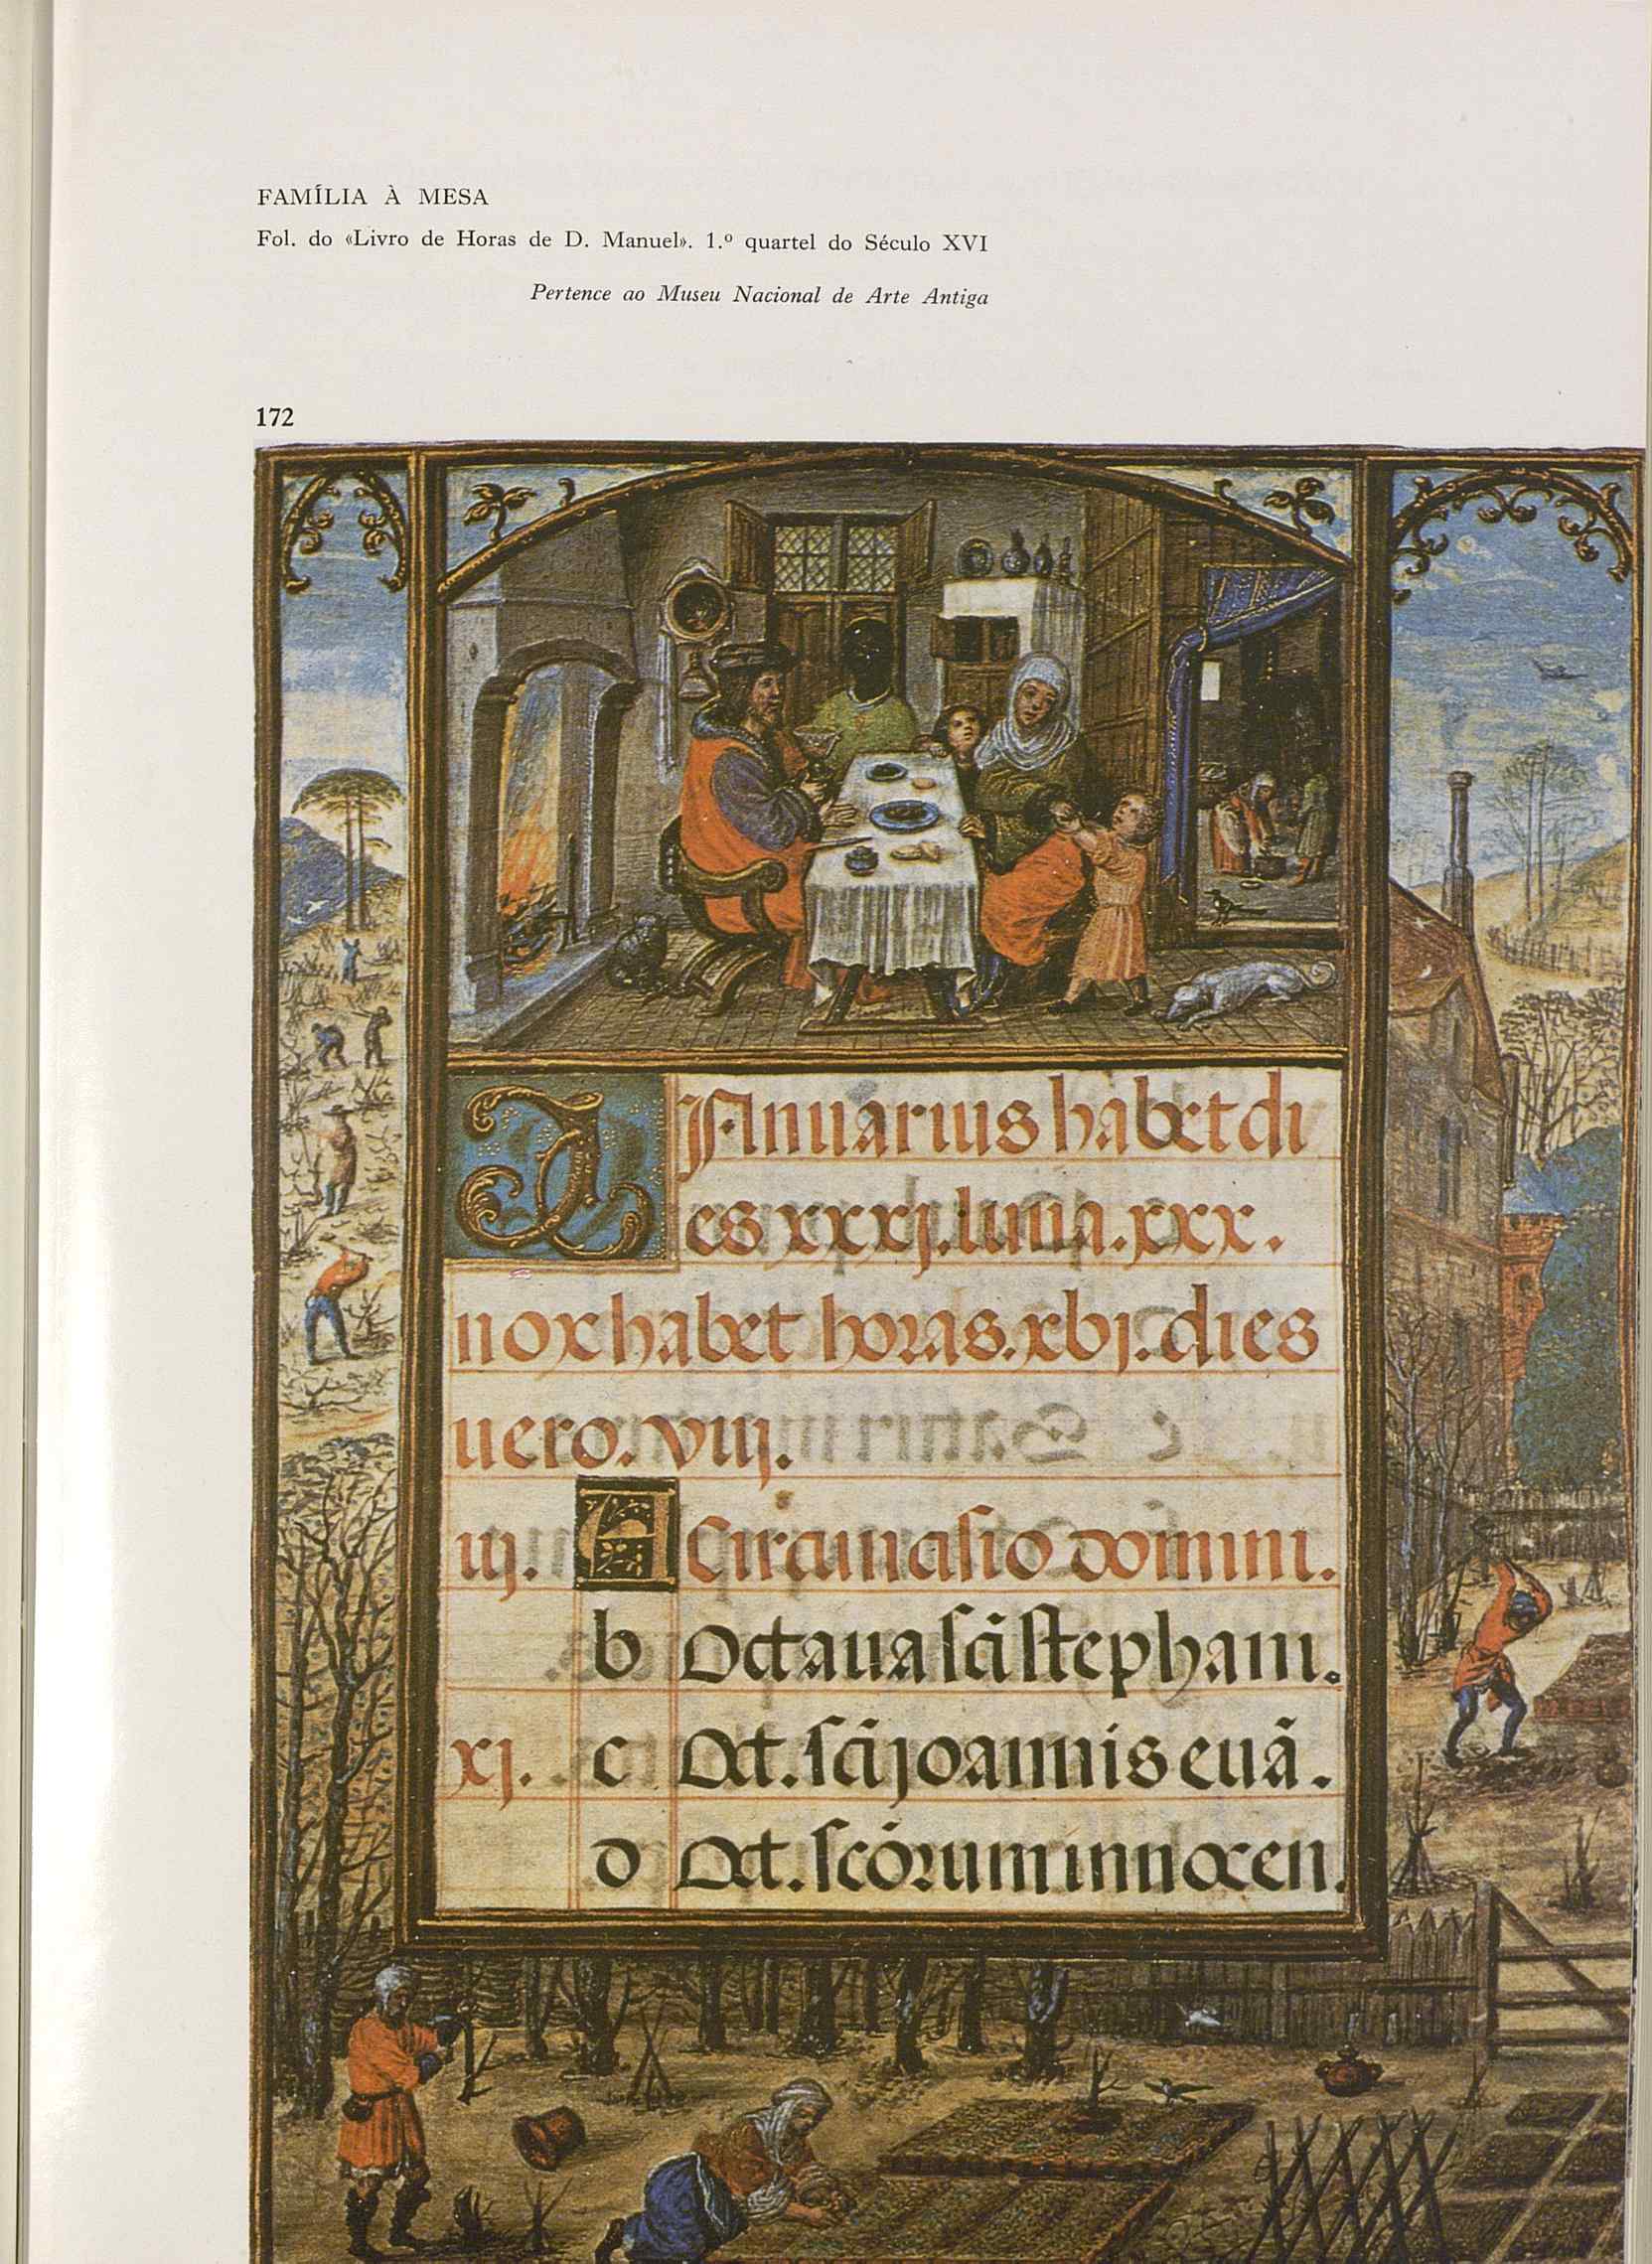 FAMÍLIA À MESA
Fol. do «Livro de Horas de D. Manuel». 1.º quartel do Século XVI
Pertence ao Museu Nacional de Arte Antiga
172
JAnuarius habet di
es xxxj. luna. xxx.
nox habet horas. xbj. dies
uero. viij.
iij. A Circuncisio domini.
b Octaua scī stephani.
xj. c Oct. scī joannis euā.
d Oct. scōrum innocen.